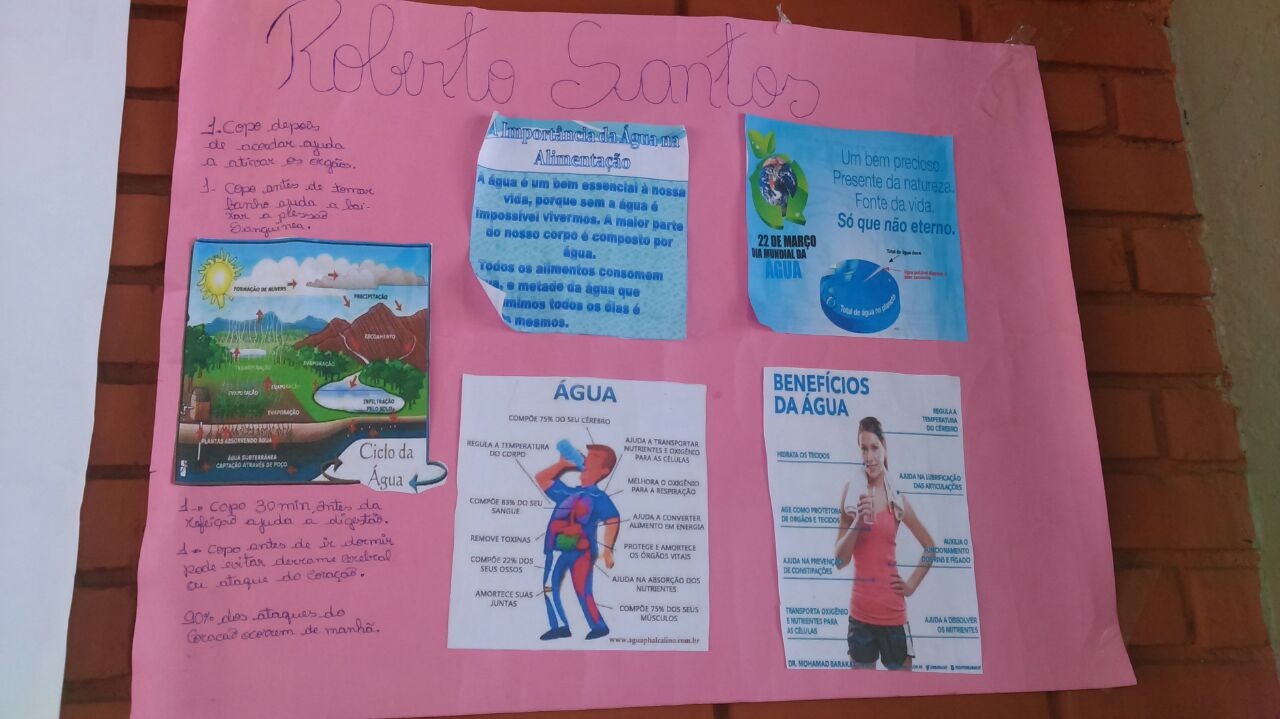 Roberto Santos
1. Copo depois
de acordar ajuda
a ativar os orgãos.
1- Copo antes de tomar
banho ajuda a bai-
xar a plessão
Sanguínea.
FORMAÇÃO DE NUVENS
PRECIPITAÇÃO
ESCOAMENTO
TRANSPIRAÇÃO
EVAPORAÇÃO
EVAPORAÇÃO
INFILTRAÇÃO
PELO SOLO
EVAPORAÇÃO
PLANTAS ABSORVENDO ÁGUA
ÁGUA SUBTERRÂNEA
CAPTAÇÃO ATRAVÉS DE POÇO
Ciclo da
Água
1-> Copo 30 min, antes da
Refeição ajuda a digestão.
1-> Copo antes de ir dormir
pode evitar derrame cerebral
ou ataque do Coração.
90% dos ataques do
Coração ocorrem de manhã.
A Importância da Água na
Alimentação
A água é um bem essencial à nossa
vida, porque sem a água é
impossível vivermos. A maior parte
do nosso corpo é composto por
água.
Todos os alimentos consomem
e metade da água que
todos os dias é
mesmos.
Um bem precioso.
Presente da natureza.
Fonte da vida.
Só que não eterno.
22 DE MARÇO
DIA MUNDIAL DA
ÁGUA
Total de água doce
Total de água no planeta
ÁGUA
COMPÕE 75% DO SEU CÉREBRO
REGULA A TEMPERATURA
DO CORPO
COMPÕE 83% DO SEU
SANGUE
REMOVE TOXINAS
COMPÕE 22% DOS
SEUS OSSOS
AMORTECE SUAS
JUNTAS
AJUDA A TRANSPORTAR
NUTRIENTES E OXIGÊNIO
PARA AS CÉLULAS
MELHORA O OXIGÊNIO
PARA A RESPIRAÇÃO
AJUDA A CONVERTER
ALIMENTO EM ENERGIA
PROTEGE E AMORTECE
OS ÓRGÃOS VITAIS
AJUDA NA ABSORÇÃO DOS
NUTRIENTES
COMPÕE 75% DOS SEUS
MÚSCULOS
www.aguaphalcalino.com.br
BENEFÍCIOS
DA ÁGUA
HIDRATA OS TECIDOS
AGE COMO PROTETORA
DE ORGÃOS E TECIDOS
AJUDA NA PREVENÇÃO
DE CONSTIPAÇÕES
TRANSPORTA OXIGÊNIO
E NUTRIENTES PARA
AS CÉLULAS
REGULA A
TEMPERATURA
DO CÉREBRO
AJUDA NA LUBRIFICAÇÃO
DAS ARTICULAÇÕES
AUXILIA O
FUNCIONAMENTO
DOS RINS E FÍGADO
AJUDA A DISSOLVER
OS NUTRIENTES
DR. MOHAMAD BARAKAT